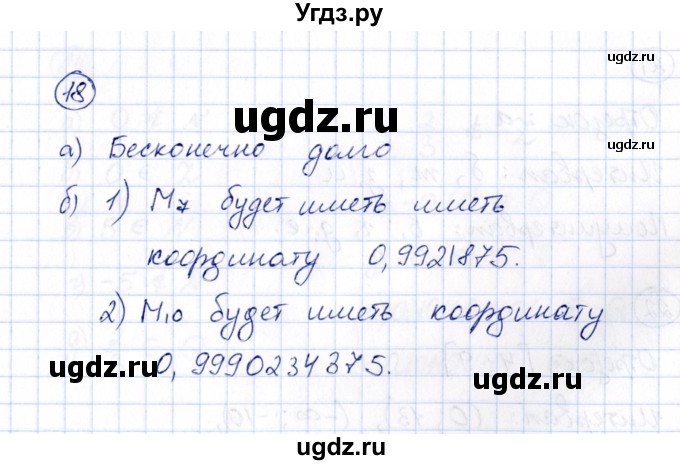 Угдз.ру
ugdz.ru
ugdz.ru
18
ugdz.ru
ugdz.ru
а) Бесконечно долго
ugdz.ru
б) 1) М7 будет иметь иметь
координату 0,9921875.
ugdz.ru
2) М10 будет иметь координату
ugdz.ru
0,9990234375.
ugdz.ru
ugdz.ru
ugdz.ru